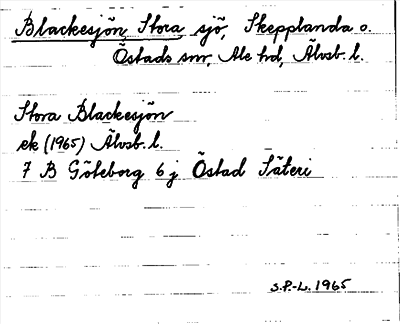 Blackesjön, Stora, sjö, Skepplanda o.
Östads snr, Ale hd, Älvsb. l.
Stora Blackesjön
ek (1965) Älvsb. l.
7 B Göteborg 6 j Östad Säteri
S.P.-L. 1965